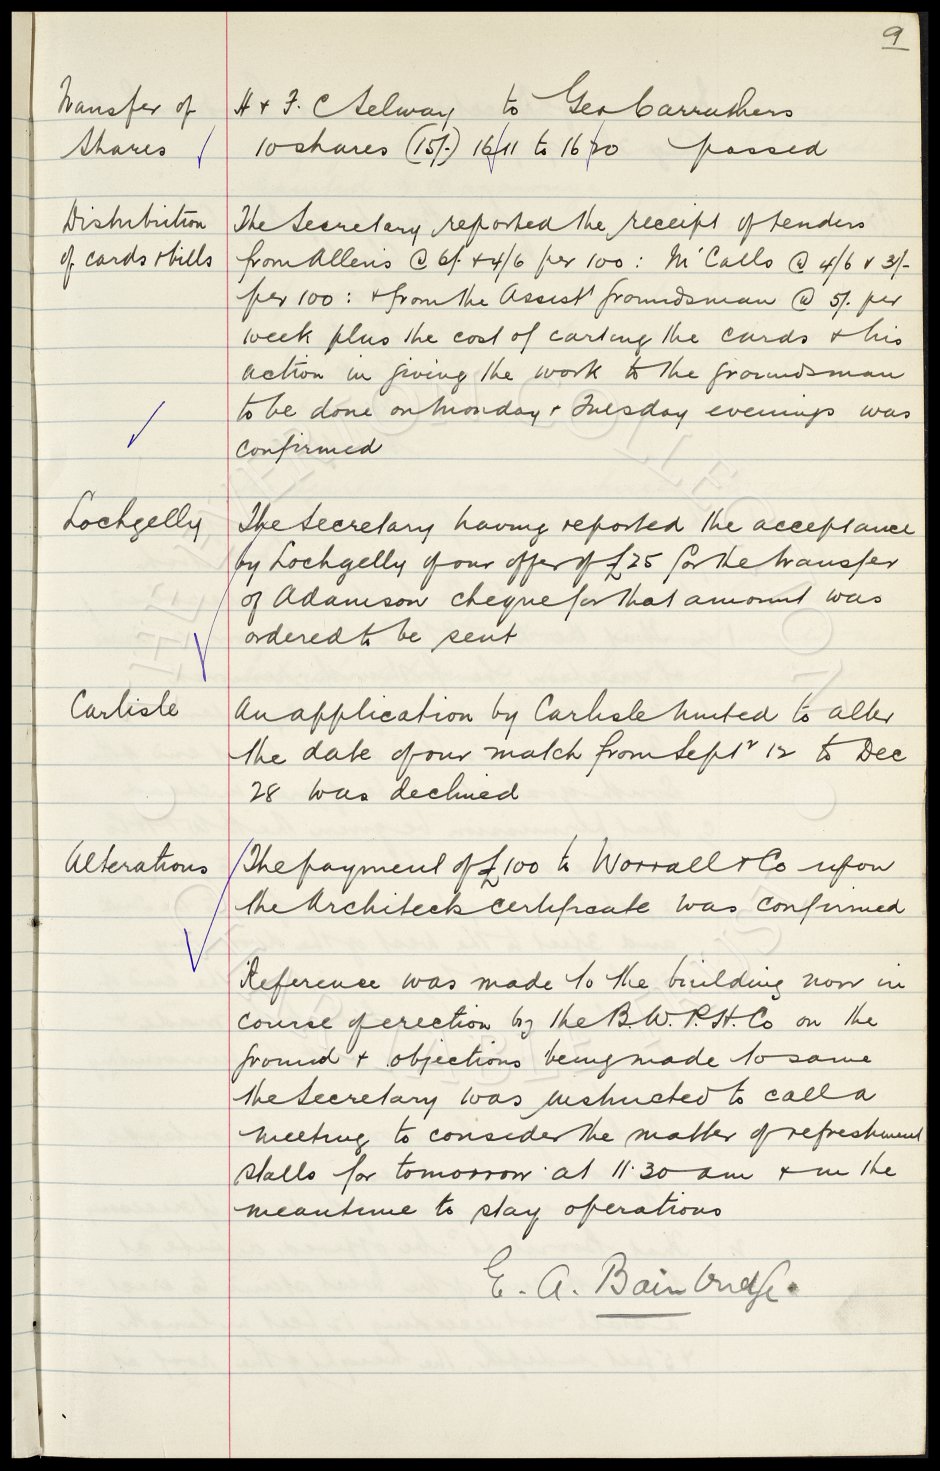 9
Transfer of
Shares
H & F. C Selway to Geo Carruthers
10 shares (15/-) 1611 to 1620 passed
Distribution
of cards & bills
The Secretary reported the receipt of tenders
from Allens @ 6/- & 4/6 per 100 : McCalls @ 4/6 & 3/-
per 100 : & from the Assist groundsman @ 5/- per
week plus the cost of carting the cards & his
action in giving the work to the groundsman
to be done on Monday & Tuesday evenings was
confirmed
Lochgelly
The Secretary having reported the acceptance
by Lochgelly of our offer of £25 for the transfer
of Adamson cheque for that amount was
ordered to be sent
Carlisle
An application by Carlisle United to alter
the date of our match from Septr 12 to Dec
28 was declined
Alterations
The payment of £100 to Worrall & Co upon
the Architects certificate was confirmed
Reference was made to the building now in
course of erection by the B.W.P.H. Co on the
ground & objections being made to same
the Secretary was instructed to call a
meeting to consider the matter of refreshment
stalls for tomorrow at 11.30 am & in the
meantime to stay operations
E. A. Bainbridge.
THE EVERTON COLLECTION